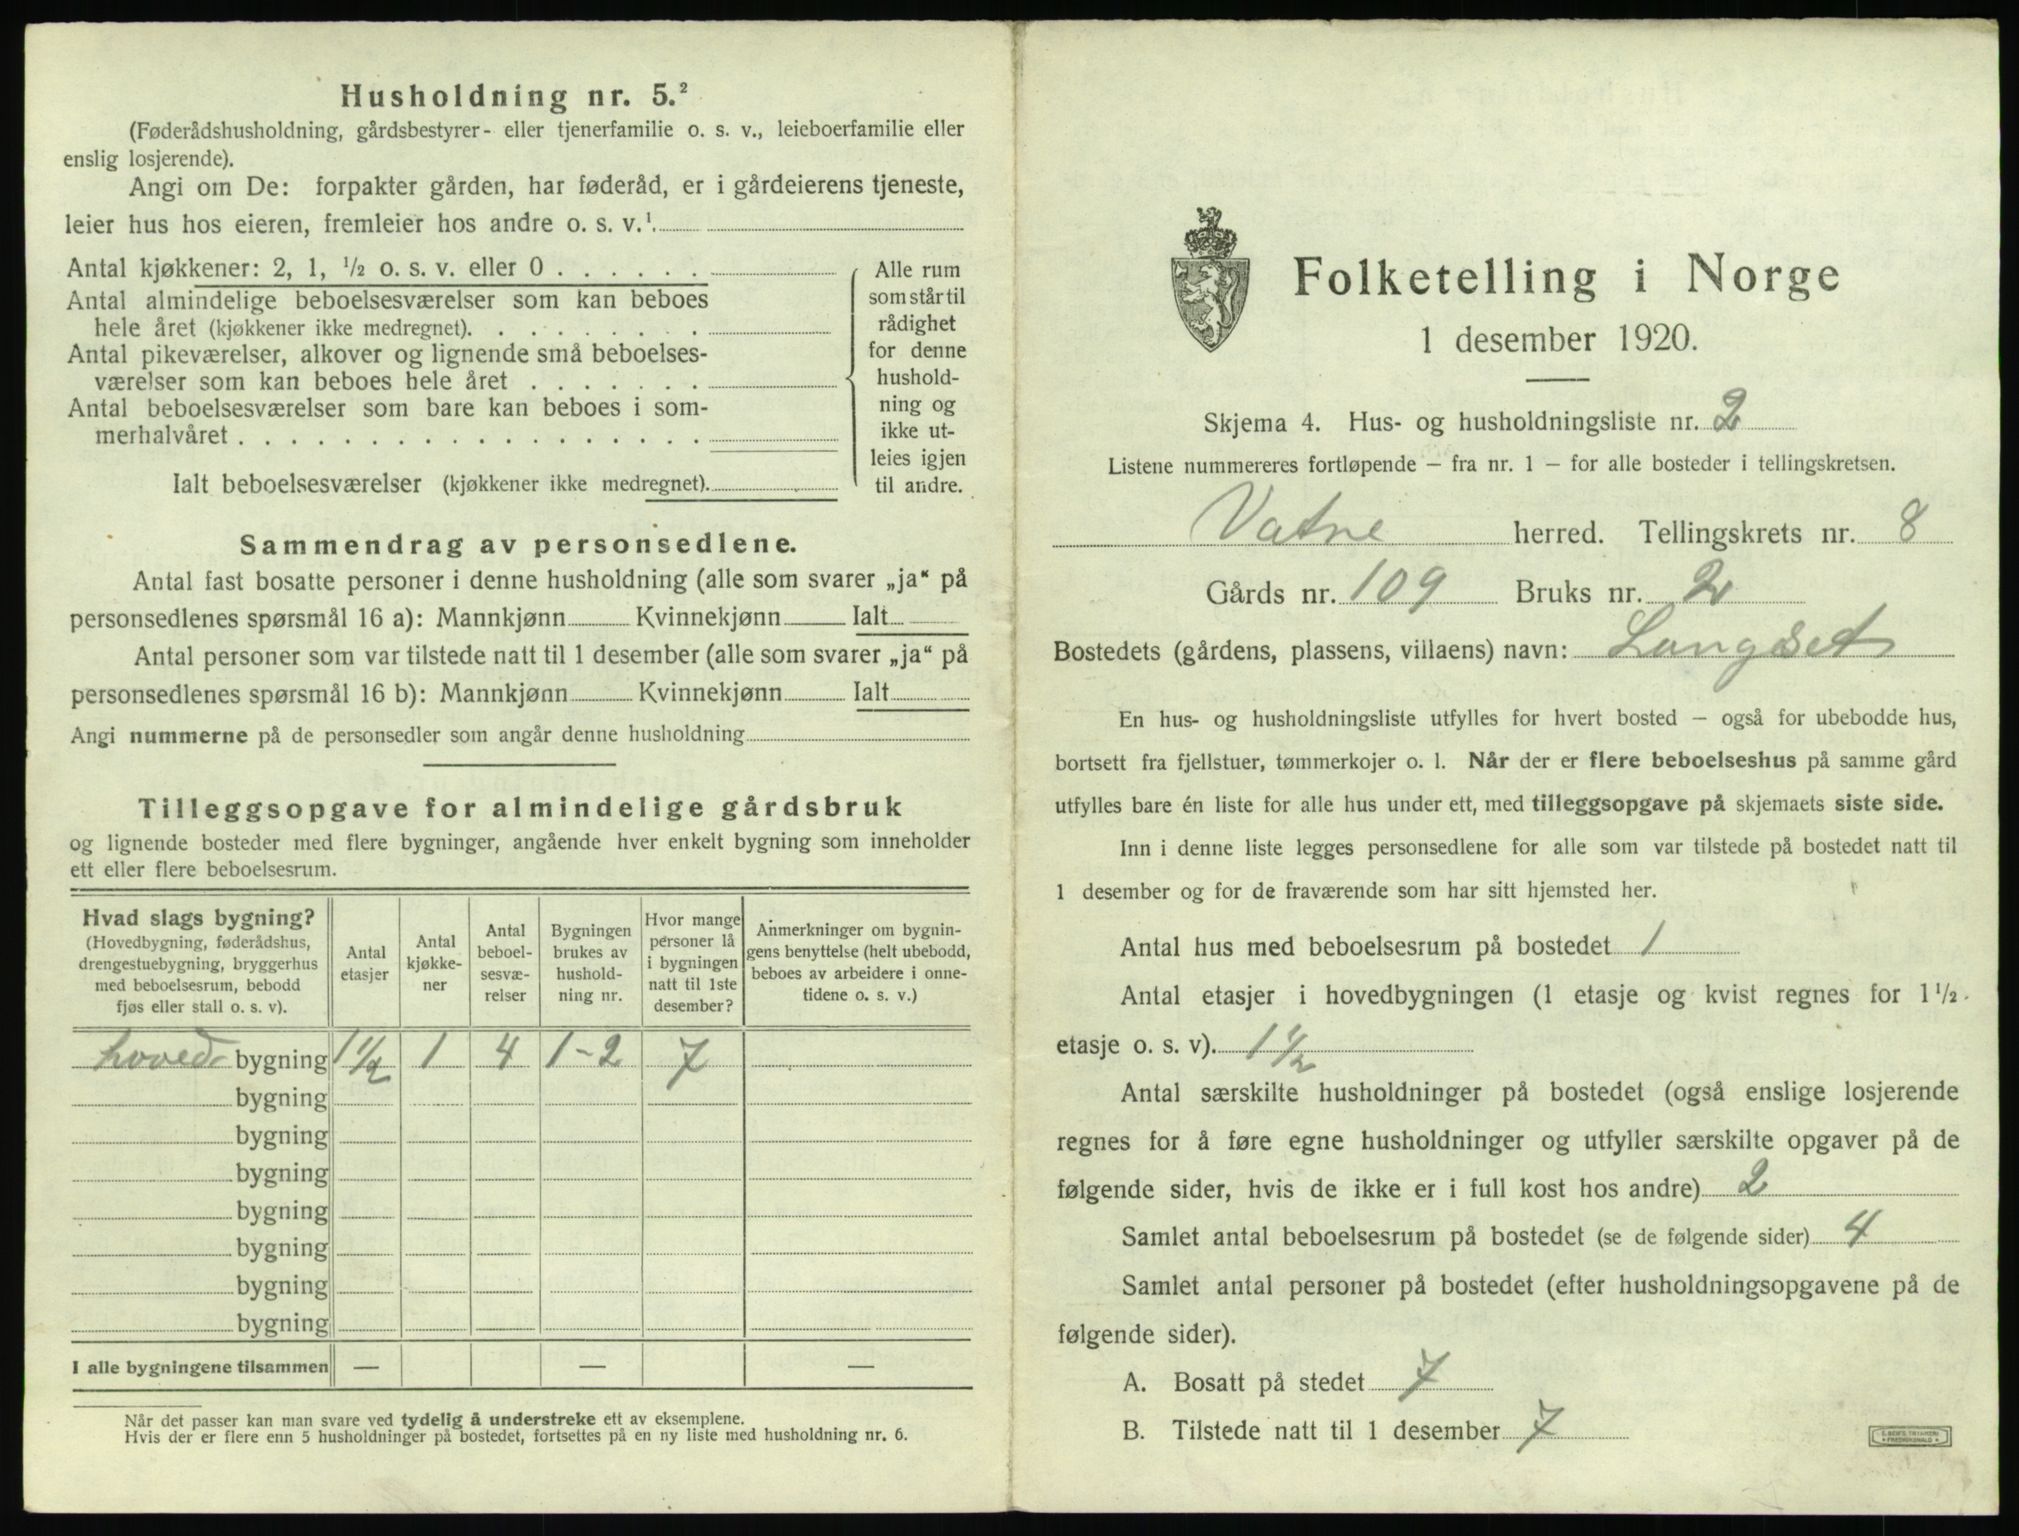 Husholdning nr. 5.²
(Føderådshusholdning, gårdsbestyrer- eller tjenerfamilie o. s. v., leieboerfamilie eller
enslig losjerende).
Angi om De: forpakter gården, har føderåd, er i gårdeierens tjeneste,
leier hus hos eieren, fremleier hos andre o. s. v.¹
Antal kjøkkener: 2, 1, ½ o. s. v. eller 0 . . . . . .
Antal almindelige beboelsesværelser som kan beboes
hele året (kjøkkener ikke medregnet). . . . . . . . .
Antal pikeværelser, alkover og lignende små beboelses-
værelser som kan beboes hele året . . . . . . .
Antal beboelsesværelser som bare kan beboes i som-
merhalvåret . . . . . . . . . . . . . . . . . .
Ialt beboelsesværelser (kjøkkener ikke medregnet).
Alle rum
som står til
rådighet
for denne
hushold-
ning og
ikke ut-
leies igjen
til andre.
Sammendrag av personsedlene.
Antal fast bosatte personer i denne husholdning (alle som svarer „ja“ på
personsedlenes spørsmål 16 a): Mannkjønn Kvinnekjønn Ialt
Antal personer som var tilstede natt til 1 desember (alle som svarer „ja“ på
personsedlenes spørsmål 16 b): Mannkjønn Kvinnekjønn Ialt
Angi nummerne på de personsedler som angår denne husholdning
Tilleggsopgave for almindelige gårdsbruk
og lignende bosteder med flere bygninger, angående hver enkelt bygning som inneholder
ett eller flere beboelsesrum.
Hvad slags bygning?
(Hovedbygning, føderådshus,
drengestuebygning, bryggerhus
med beboelsesrum, bebodd
fjøs eller stall o. s. v).
Antal
etasjer
Antal
kjøkke-
ner
Antal
beboel-
sesvæ-
relser
Bygningen
brukes av
hushold-
ning nr.
Hvor mange
personer lå
i bygningen
natt til 1ste
desember?
Anmerkninger om bygnin-
gens benyttelse (helt ubebodd,
beboes av arbeidere i onne-
tidene o. s. v.)
hoved bygning 1½ 1 4 1-2 7
bygning
bygning
bygning
bygning
bygning
bygning
bygning
I alle bygningene tilsammen — — —
Når det passer kan man svare ved tydelig å understreke ett av eksemplene.
Hvis der er flere enn 5 husholdninger på bostedet, fortsettes på en ny liste med husholdning nr. 6.
Folketelling i Norge
1 desember 1920.
Skjema 4. Hus- og husholdningsliste nr. 2
Listene nummereres fortløpende – fra nr. 1 – for alle bosteder i tellingskretsen.
Vatne herred. Tellingskrets nr. 8
Gårds nr. 109 Bruks nr. 2
Bostedets (gårdens, plassens, villaens) navn: Langset
En hus- og husholdningsliste utfylles for hvert bosted – også for ubebodde hus,
bortsett fra fjellstuer, tømmerkojer o. l. Når der er flere beboelseshus på samme gård
utfylles bare én liste for alle hus under ett, med tilleggsopgave på skjemaets siste side.
Inn i denne liste legges personsedlene for alle som var tilstede på bostedet natt til
1 desember og for de fraværende som har sitt hjemsted her.
Antal hus med beboelsesrum på bostedet 1
Antal etasjer i hovedbygningen (1 etasje og kvist regnes for 1½
etasje o. s. v). 1½
Antal særskilte husholdninger på bostedet (også enslige losjerende
regnes for å føre egne husholdninger og utfyller særskilte opgaver på de
følgende sider, hvis de ikke er i full kost hos andre) 2
Samlet antal beboelsesrum på bostedet (se de følgende sider) 4
Samlet antal personer på bostedet (efter husholdningsopgavene på de
følgende sider).
A. Bosatt på stedet 7
B. Tilstede natt til 1 desember 7